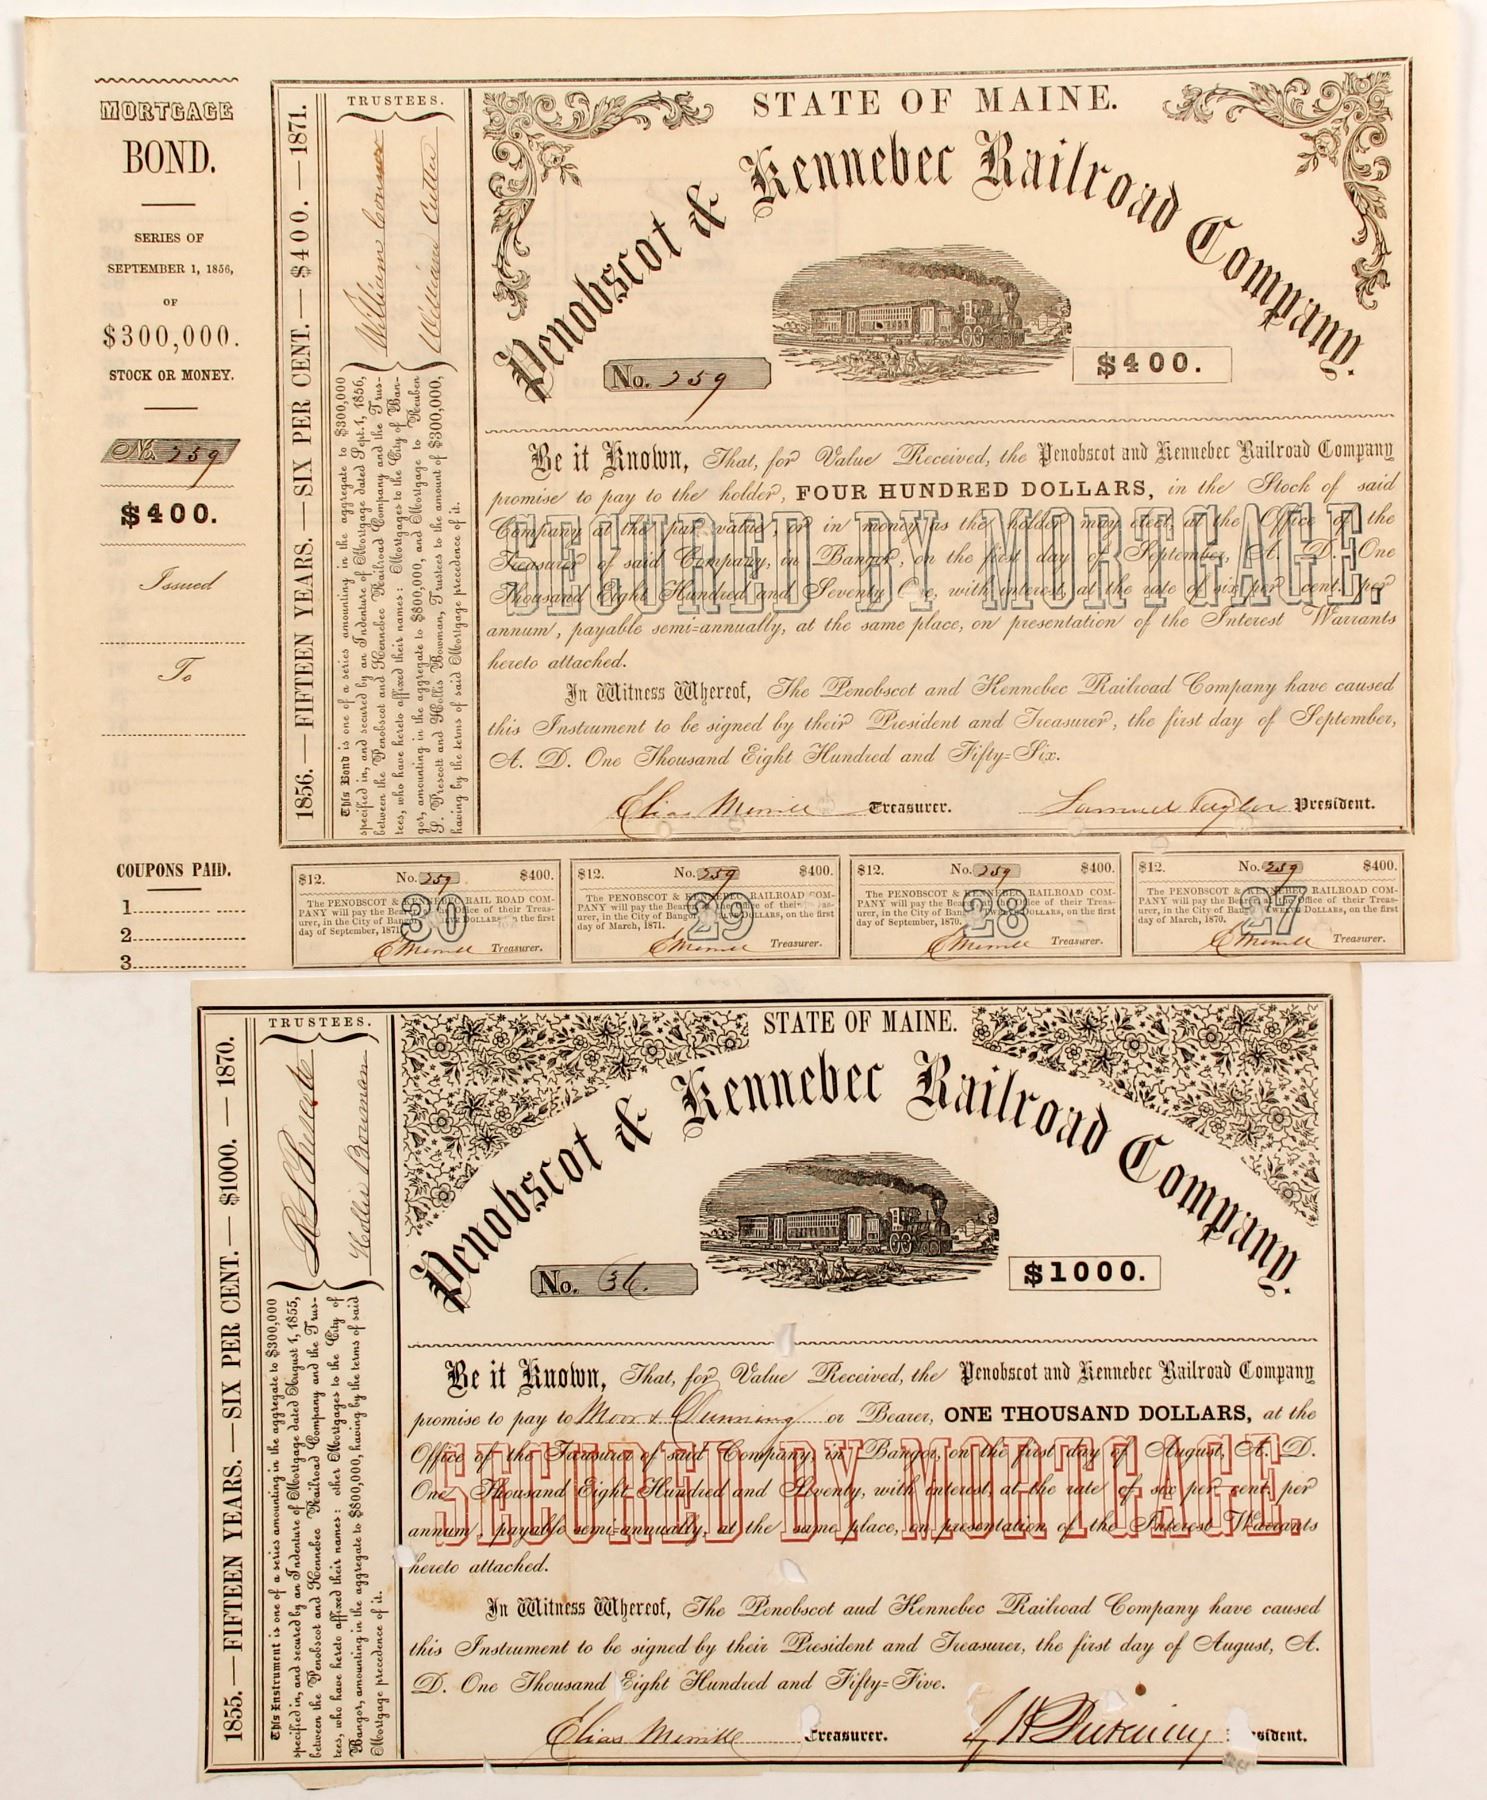 MORTGAGE
BOND.
SERIES OF
SEPTEMBER 1, 1856,
OF
$300,000.
STOCK OR MONEY.
No. 259
$400.
Issued
To
COUPONS PAID.
1
2
3
1856.—FIFTEEN YEARS.—SIX PER CENT.—$400.—1871.
TRUSTEES.
William Conner
William Cutter
This Bond is one of a series amounting in the aggregate to $300,000
specified in, and secured by an Indenture of Mortgage dated Sept. 1, 1856,
between the Penobscot and Kennebec Railroad Company and the Trus-
tees, who have hereto affixed their names: other Mortgages to the City of Ban-
gor, amounting in the aggregate to $800,000, and Mortgage to Reuben
S. Prescott and Hollis Bowman, Trustees to the amount of $300,000,
having by the terms of said Mortgage precedence of it.
STATE OF MAINE.
Penobscot & Kennebec Railroad Company.
No. 259
$400.
Be it Known, That, for Value Received, the Penobscot and Kennebec Railroad Company
promise to pay to the holder, FOUR HUNDRED DOLLARS, in the Stock of said
Company at the par value, or in money as the holder may elect, at the Office of the
Treasurer of said Company, in Bangor, on the first day of September, A. D. One
Thousand Eight Hundred and Seventy One, with interest, at the rate of six per cent. per
annum, payable semi-annually, at the same place, on presentation of the Interest Warrants
hereto attached.
SECURED BY MORTGAGE.
In Witness Whereof, The Penobscot and Kennebec Railroad Company have caused
this Instrument to be signed by their President and Treasurer, the first day of September,
A. D. One Thousand Eight Hundred and Fifty-Six.
Elias Merrill Treasurer. Samuel Taylor President.
$12. No. 259 $400.
The PENOBSCOT & KENNEBEC RAIL ROAD COM-
PANY will pay the Bearer Office of their Treas-
urer, in the City of Bangor DOLLARS, on the first
day of September, 1871.
30
E Merrill Treasurer.
$12. No. 259 $400.
The PENOBSCOT & KENNEBEC RAILROAD COM-
PANY will pay the Bearer Office of their Treas-
urer, in the City of Bangor DOLLARS, on the first
day of March, 1871.
29
E Merrill Treasurer.
$12. No. 259 $400.
The PENOBSCOT & KENNEBEC RAILROAD COM-
PANY will pay the Bearer Office of their Treas-
urer, in the City of Bangor TWELVE DOLLARS, on the first
day of September, 1870.
28
E Merrill Treasurer.
$12. No. 259 $400.
The PENOBSCOT & KENNEBEC RAILROAD COM-
PANY will pay the Bearer Office of their Treas-
urer, in the City of Bangor TWELVE DOLLARS, on the first
day of March, 1870.
27
E Merrill Treasurer.
1855.—FIFTEEN YEARS.—SIX PER CENT.—$1000.—1870.
TRUSTEES.
R S Prescott
Hollis Bowman
This Instrument is one of a series amounting in the aggregate to $300,000
specified in, and secured by an Indenture of Mortgage dated August 1, 1855,
between the Penobscot and Kennebec Railroad Company and the Trus-
tees, who have hereto affixed their names: other Mortgages to the City of
Bangor, amounting in the aggregate to $800,000, having by the terms of said
Mortgage precedence of it.
STATE OF MAINE.
Penobscot & Kennebec Railroad Company.
No. 36.
$1000.
Be it Known, That, for Value Received, the Penobscot and Kennebec Railroad Company
promise to pay to Moor & Dunning or Bearer, ONE THOUSAND DOLLARS, at the
Office of the Treasurer of said Company, in Bangor, on the first day of August, A. D.
One Thousand Eight Hundred and Seventy, with interest, at the rate of six per cent. per
annum, payable semi-annually, at the same place, on presentation of the Interest Warrants
hereto attached.
SECURED BY MORTGAGE.
In Witness Whereof, The Penobscot and Kennebec Railroad Company have caused
this Instrument to be signed by their President and Treasurer, the first day of August, A.
D. One Thousand Eight Hundred and Fifty-Five.
Elias Merrill Treasurer. President.